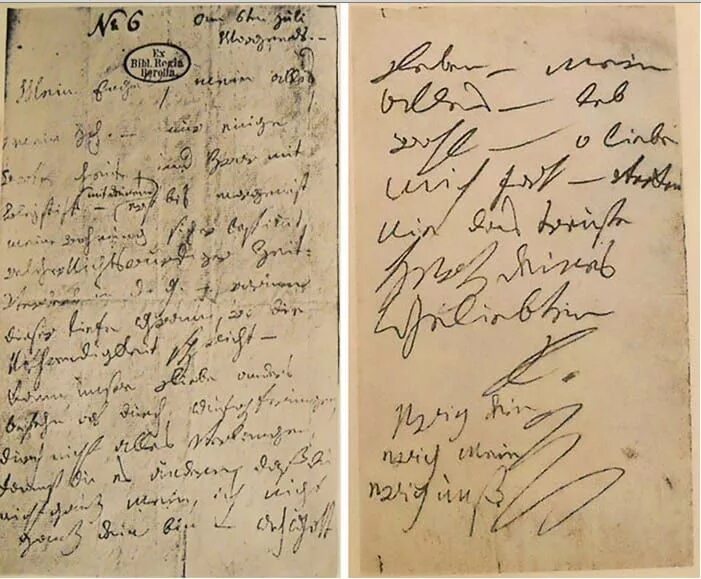 № 6
am 6ten Juli
Morgends. –
Ex
Bibl. Regia
Berolin.
Mein Engel, mein alles
mein Ich. – nur einige
Worte heute, und zwar mit
Bleistift – (mit deinem) –
erst bis morgen ist
meine Wohnung sicher bestimmt,
welcher Nichtswürdiger Zeit-
verderb in d. g. – warum
dieser tiefe Gram, wo die
Nothwendigkeit spricht –
Kann unsre Liebe anders
bestehn als durch Aufopferungen,
durch nicht alles verlangen,
kannst du es ändern, daß du
nicht ganz mein, ich nicht
ganz dein bin – Ach Gott
Leben – mein
alles – leb
wohl – o liebe
mich fort – verken
nie das treuste
Herz deines
Geliebten
L.
ewig dein
ewig mein
ewig unß